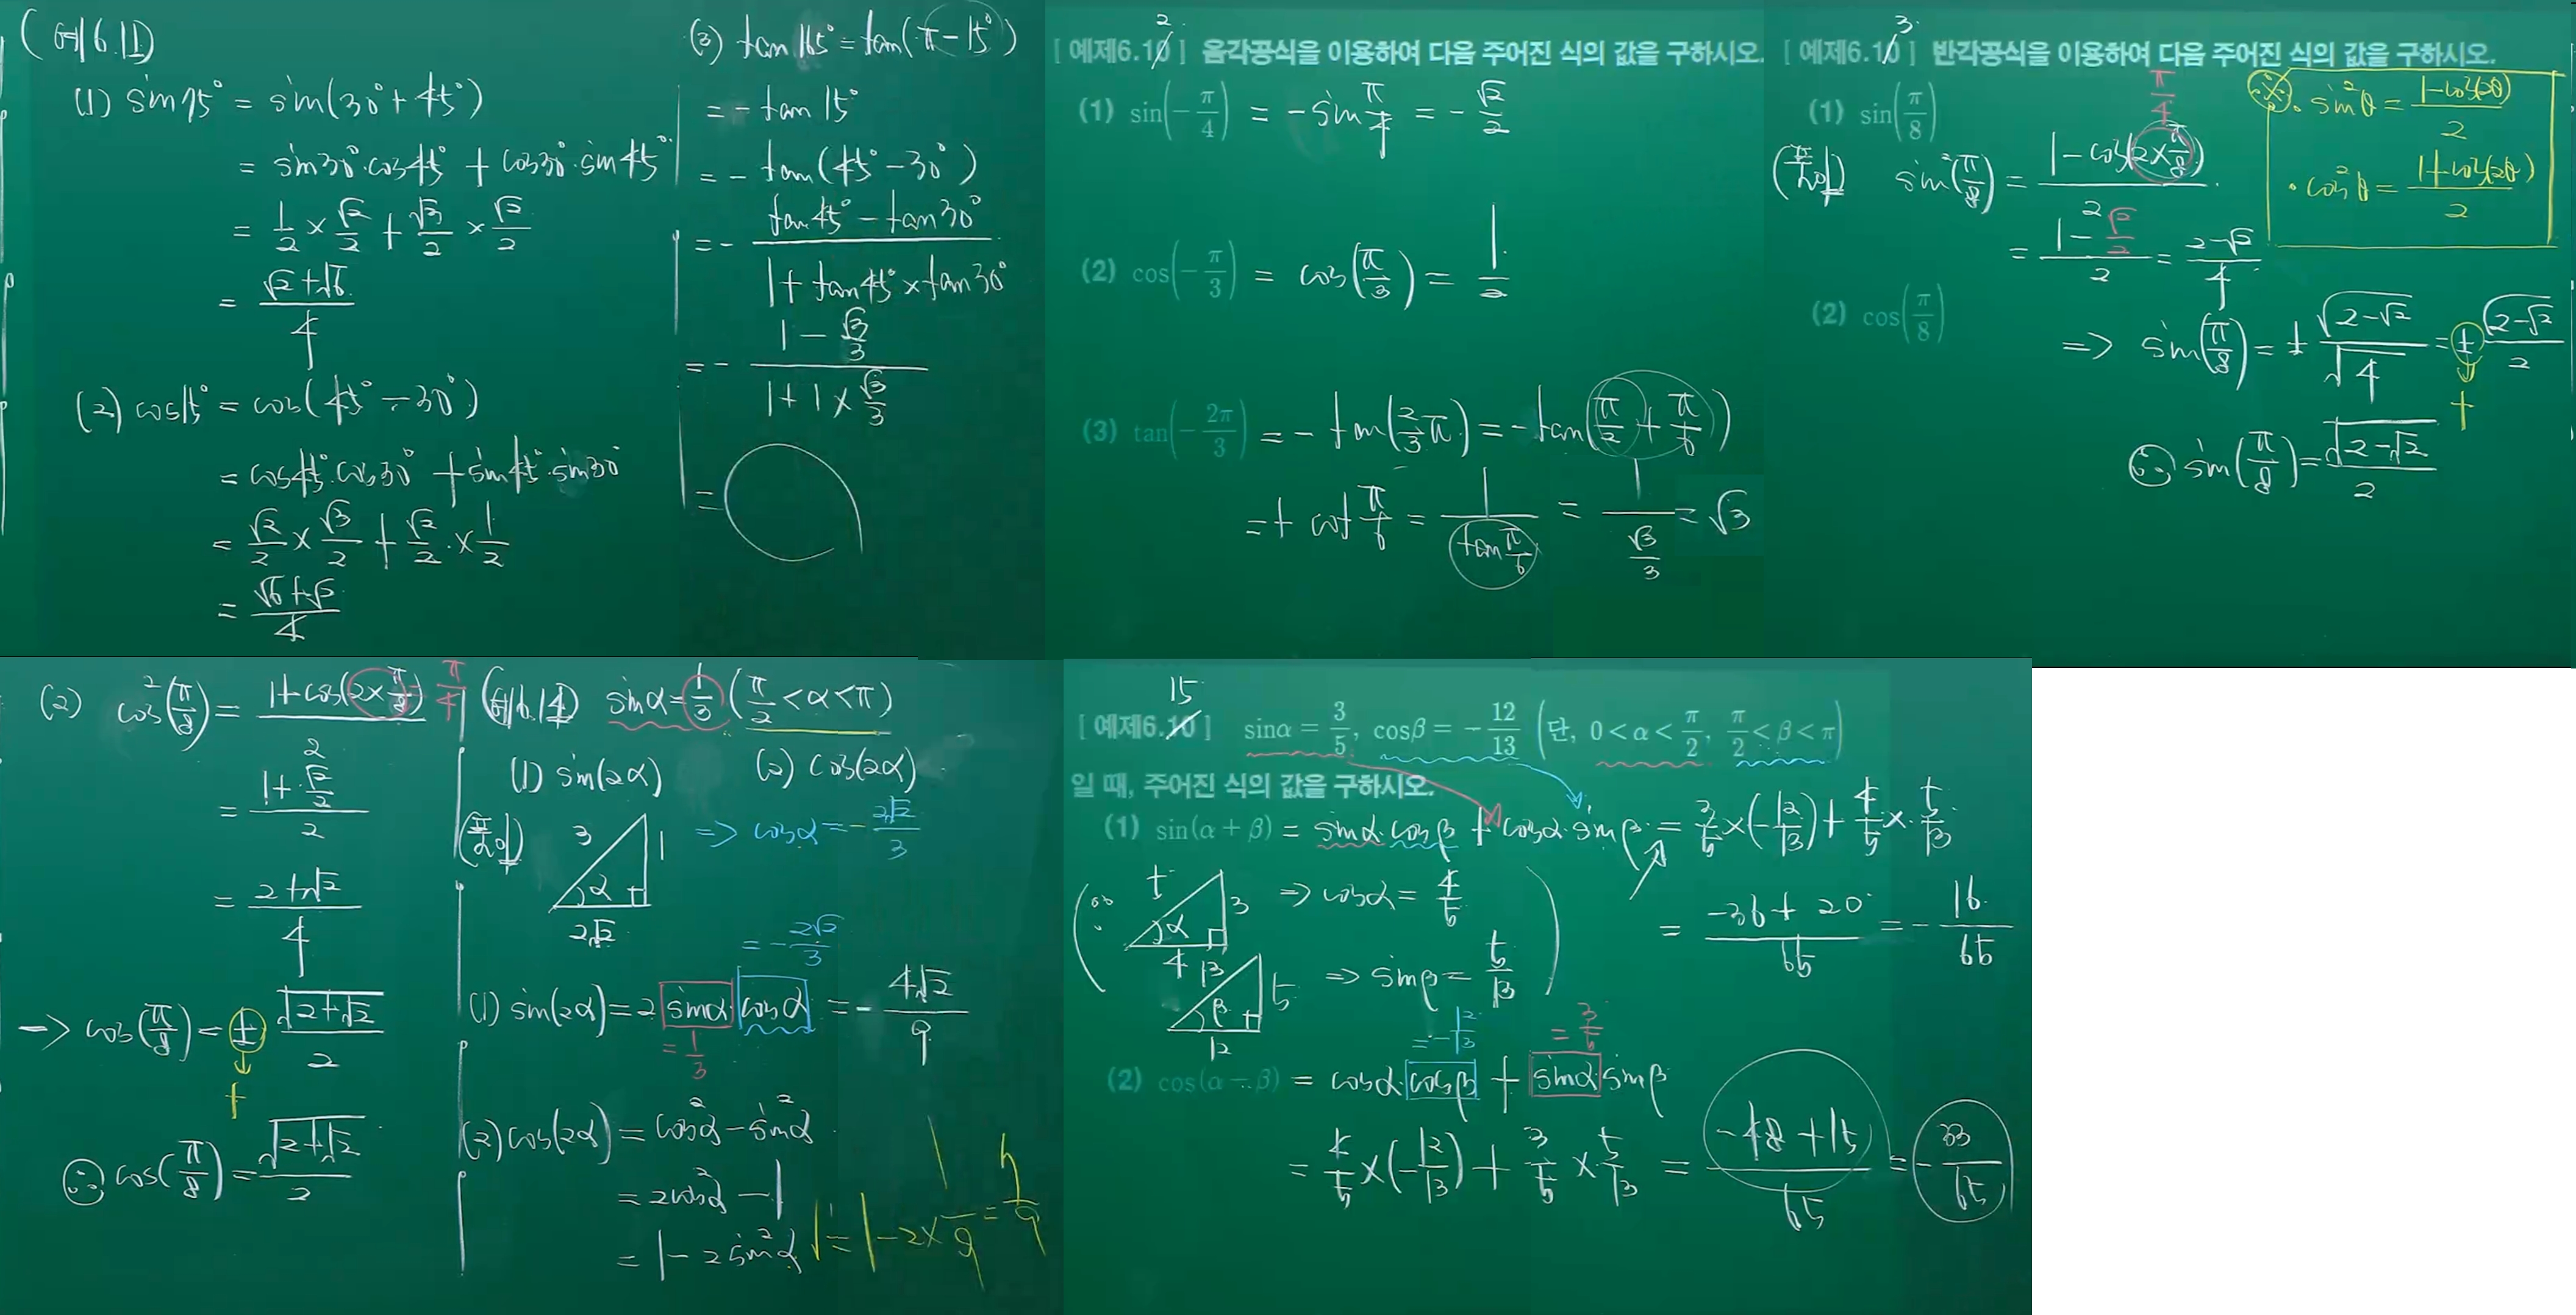 (예6.11)
(1) sin75° = sin(30°+45°)
= sin30°·cos45° + cos30°·sin45°
= 1/2 × √2/2 + √3/2 × √2/2
= (√2+√6)/4
(2) cos15° = cos(45°-30°)
= cos45°·cos30° + sin45°·sin30°
= √2/2 × √3/2 + √2/2 × 1/2
= (√6+√2)/4
(3) tan165° = tan(π-15°)
= -tan15°
= -tan(45°-30°)
= - (tan45° - tan30°)/(1+tan45°×tan30°)
= - (1 - √3/3)/(1+1×√3/3)
=
2
[ 예제6.10 ] 음각공식을 이용하여 다음 주어진 식의 값을 구하시오.
(1) sin(-π/4) = -sin π/4 = -√2/2
(2) cos(-π/3) = cos(π/3) = 1/2
(3) tan(-2π/3) = -tan(2/3 π) = -tan(π/2 + π/6)
= + cot π/6 = 1/(tan π/6) = 1/(√3/3) = √3
3
[ 예제6.10 ] 반각공식을 이용하여 다음 주어진 식의 값을 구하시오.
(1) sin(π/8)
※ · sin²θ = (1-cos(2θ))/2
· cos²θ = (1+cos(2θ))/2
π/4
(풀이) sin²(π/8) = (1-cos(2×π/8))/2
= (1-√2/2)/2 = (2-√2)/4
(2) cos(π/8)
=> sin(π/8) = ± √(2-√2)/√4 = ± √(2-√2)/2
+
∴ sin(π/8) = √(2-√2)/2
(2) cos²(π/8) = (1+cos(2×π/8))/2 = π/4
= (1+√2/2)/2
= (2+√2)/4
-> cos(π/8) = ± √(2+√2)/2
+
∴ cos(π/8) = √(2+√2)/2
(예6.14) sinα = 1/3 (π/2 < α < π)
(1) sin(2α) (2) cos(2α)
(풀이) 3 1 α 2√2 => cosα = -2√2/3
= -2√2/3
(1) sin(2α) = 2 sinα cosα = -4√2/9
= 1/3
(2) cos(2α) = cos²α - sin²α
= 2cos²α - 1
= 1 - 2sin²α = 1-2×1/9 = 7/9
15
[ 예제6.10 ] sinα = 3/5, cosβ = -12/13 (단, 0<α<π/2, π/2<β<π)
일 때, 주어진 식의 값을 구하시오.
(1) sin(α+β) = sinα·cosβ + cosα·sinβ = 3/5×(-12/13) + 4/5×5/13
= (-36+20)/65 = -16/65
(∵ 5 3 α 4 => cosα = 4/5
13 5 β 12 => sinβ = 5/13 )
= -12/13 = 3/5
(2) cos(α-β) = cosα·cosβ + sinα sinβ
= 4/5×(-12/13) + 3/5×5/13 = (-48+15)/65 = -33/65